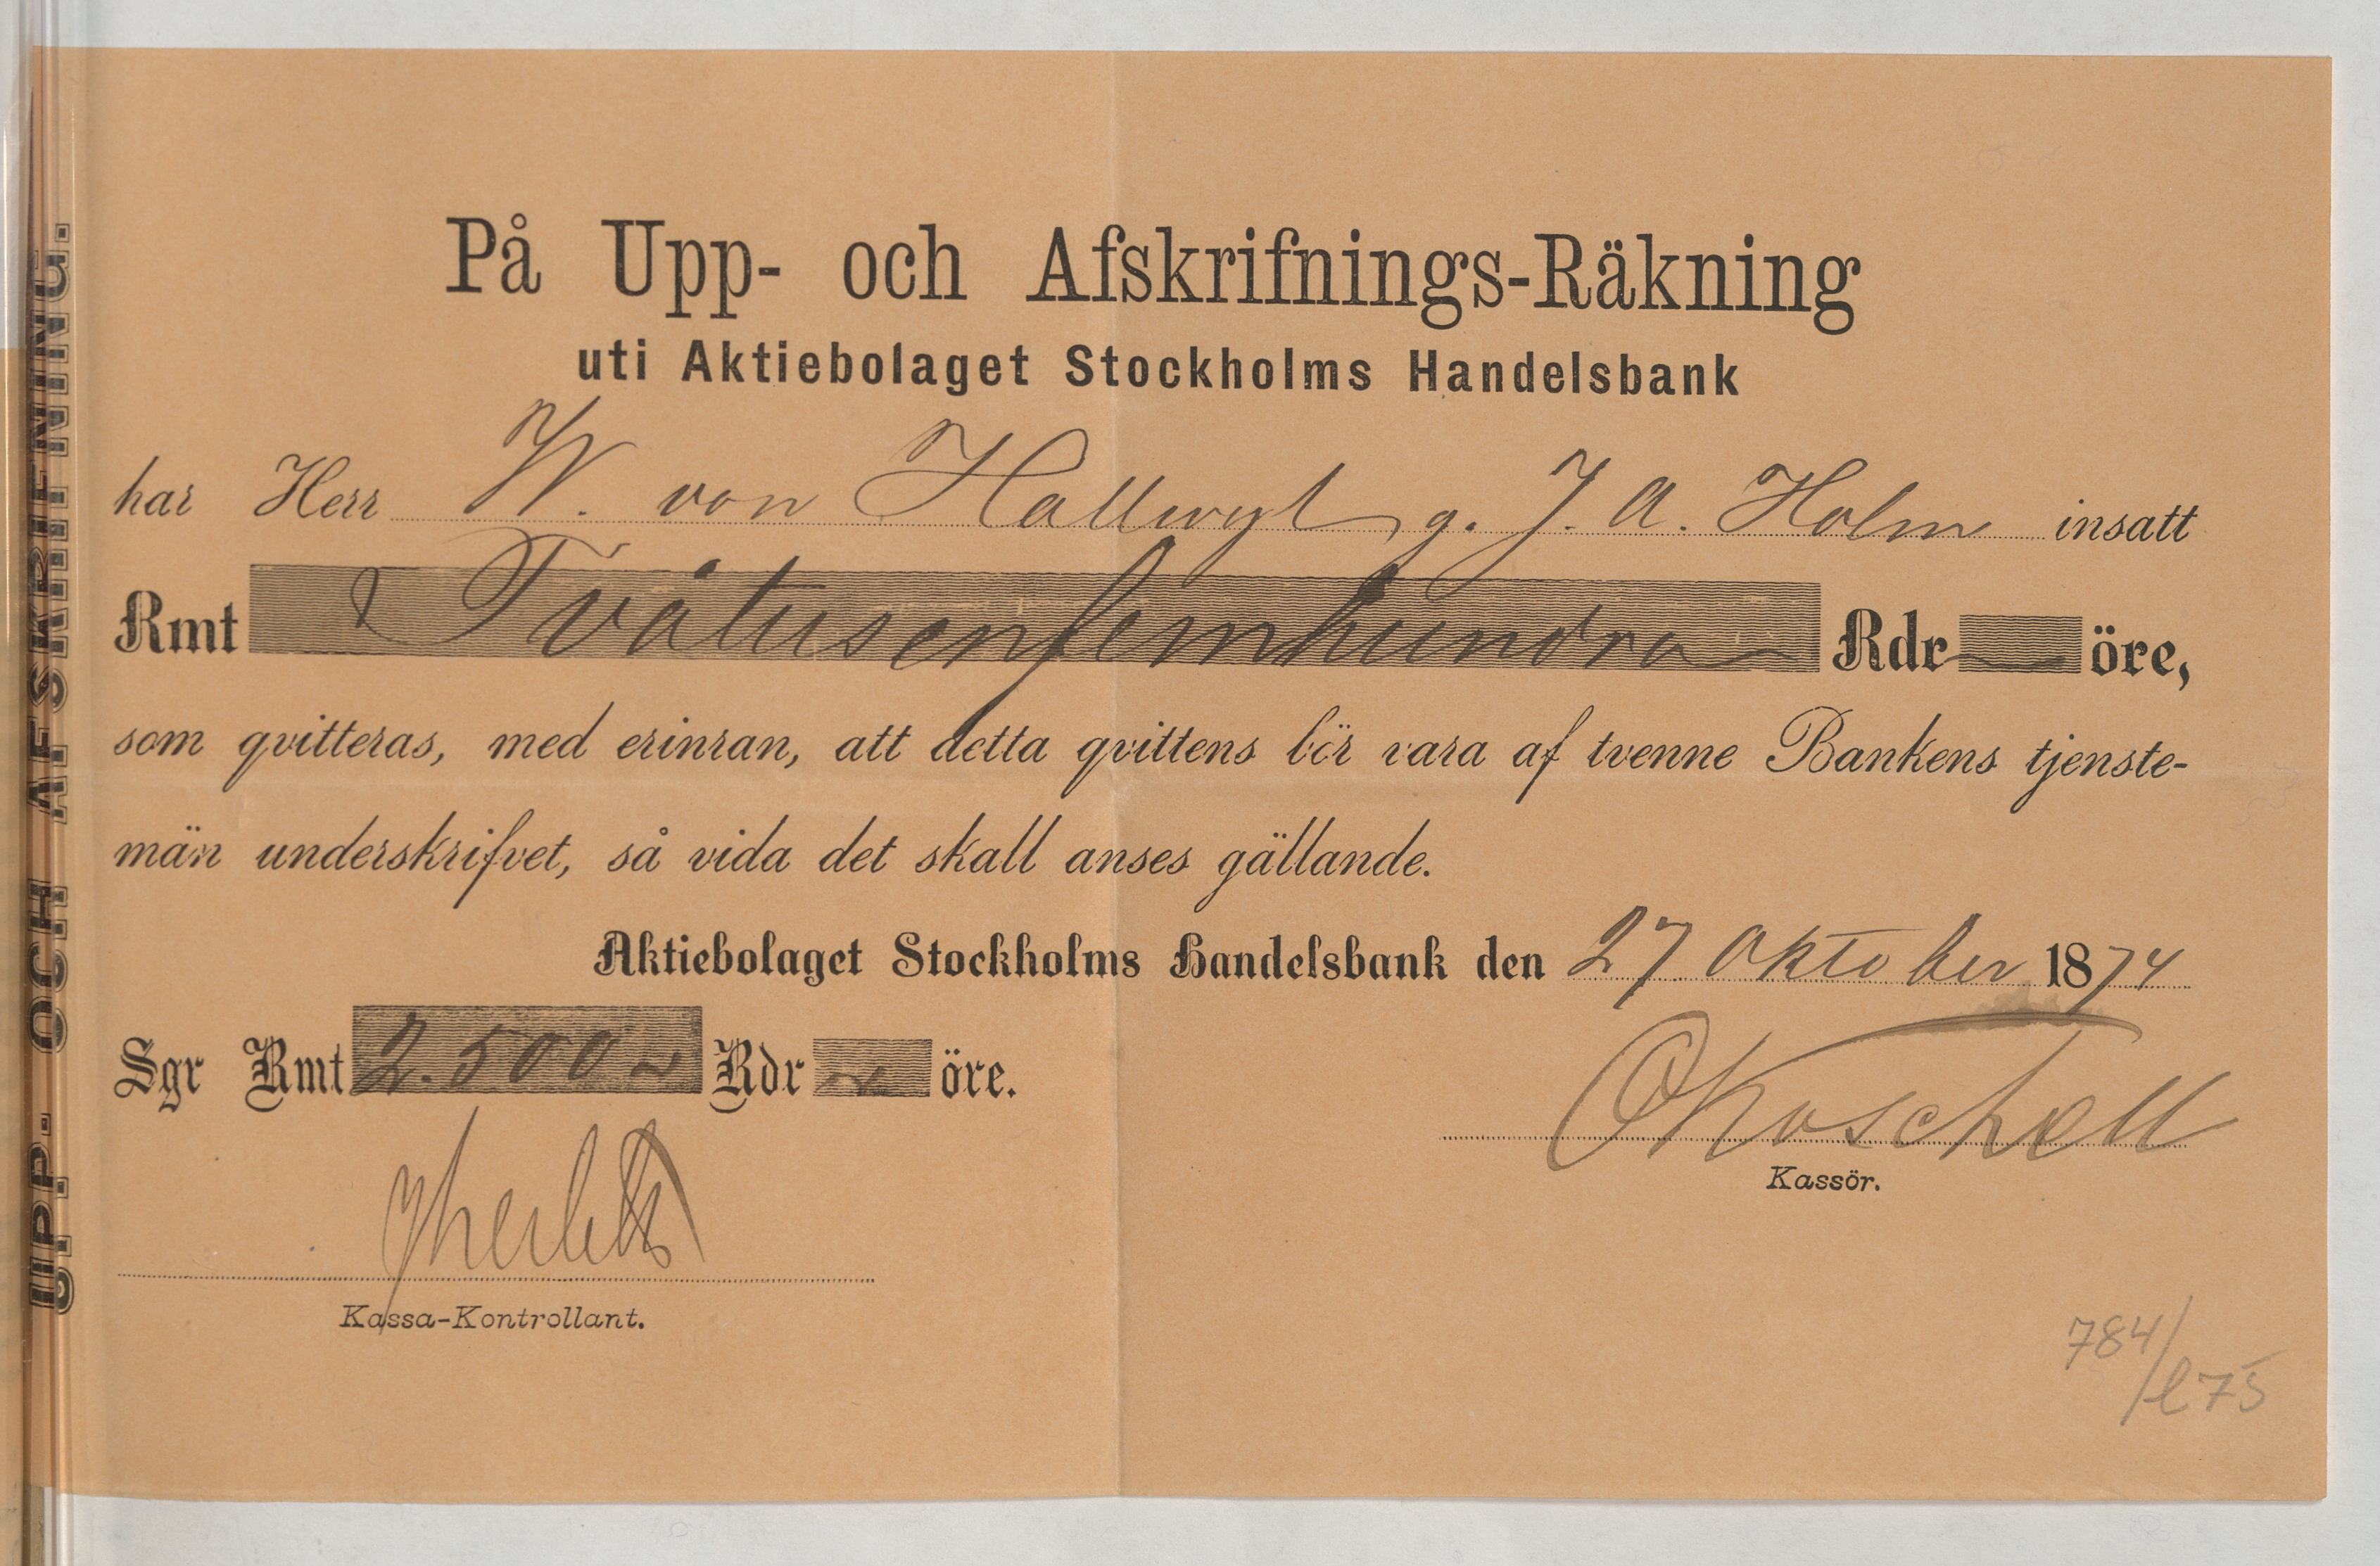 UPP- OCH AFSKRIFNING.
På Upp- och Afskrifnings-Räkning
uti Aktiebolaget Stockholms Handelsbank
har Herr W. von Hallwyl g. J. A. Holm insatt
Rmt Tvåtusenfemhundra Rdr öre,
som qvitteras, med erinran, att detta qvittens bör vara af tvenne Bankens tjenste-
män underskrifvet, så vida det skall anses gällande.
Aktiebolaget Stockholms Handelsbank den 27 Oktober 1874
Sgr Rmt 2.500 Rdr öre.
Kassör.
Kassa-Kontrollant.
784/
l 75